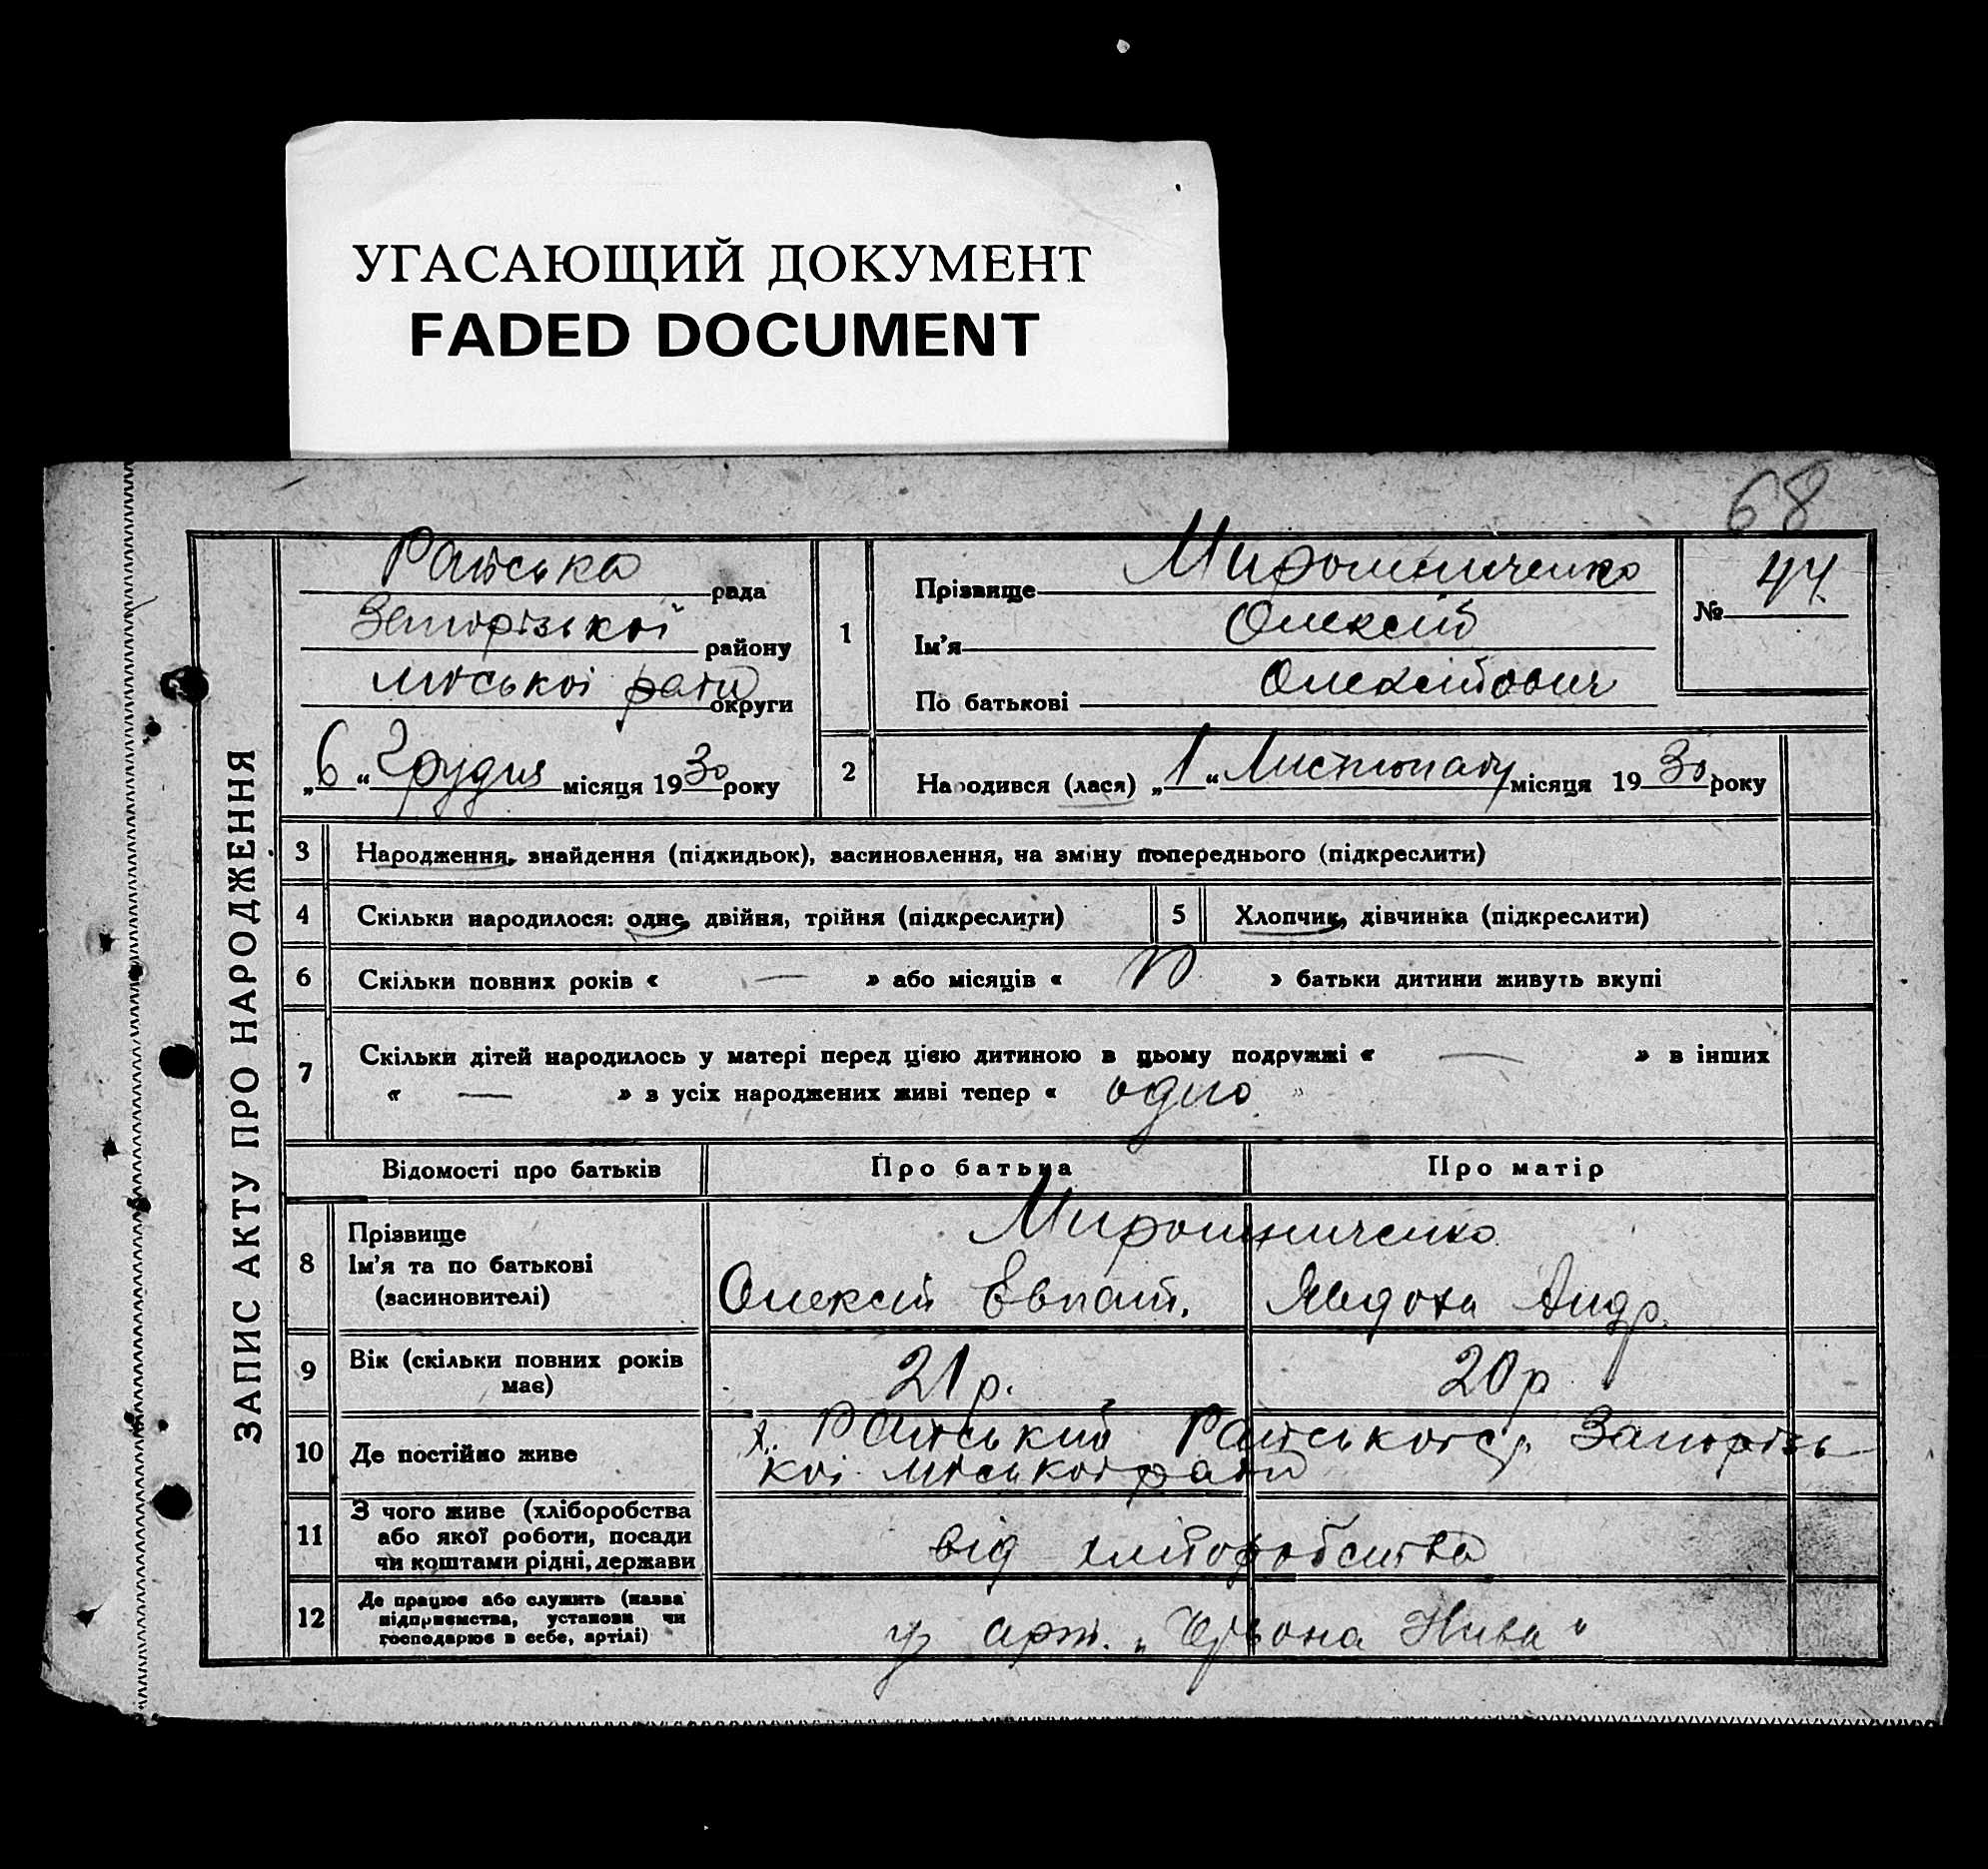 УГАСАЮЩИЙ ДОКУМЕНТ
FADED DOCUMENT
68
ЗАПИС АКТУ ПРО НАРОДЖЕННЯ
Райська рада
Запорізької району
міської ради округи
„6“ Грудня місяця 1930 року
1
Прізвище Мирошниченко
Ім'я Олексій
По батькові Олексійович
№ 44
2 Народився (лася) „1“ Листопаду місяця 1930 року
3 Народження, знайдення (підкидьок), засиновлення, на зміну попереднього (підкреслити)
4 Скільки народилося: одне, двійня, трійня (підкреслити) 5 Хлопчик, дівчинка (підкреслити)
6 Скільки повних років « — » або місяців « » батьки дитини живуть вкупі
7 Скільки дітей народилось у матері перед цією дитиною в цьому подружжі « — » в інших
« — » з усіх народжених живі тепер « одно »
Відомості про батьків Про батька Про матір
8 Прізвище Мирошниченко
Ім'я та по батькові
(засиновителі) Олексій Евпат. Явдоха Андр.
9 Вік (скільки повних років має) 21 р. 20 р.
10 Де постійно живе х. Райський Райської с/р. Запорізь
кої міської ради
11 З чого живе (хліборобства
або якої роботи, посади
чи коштами рідні, держави від хліборобства
12 Де працює або служить (назва
підприємства, установи чи
господарює в себе, артілі) у арт. „Червона Нива“